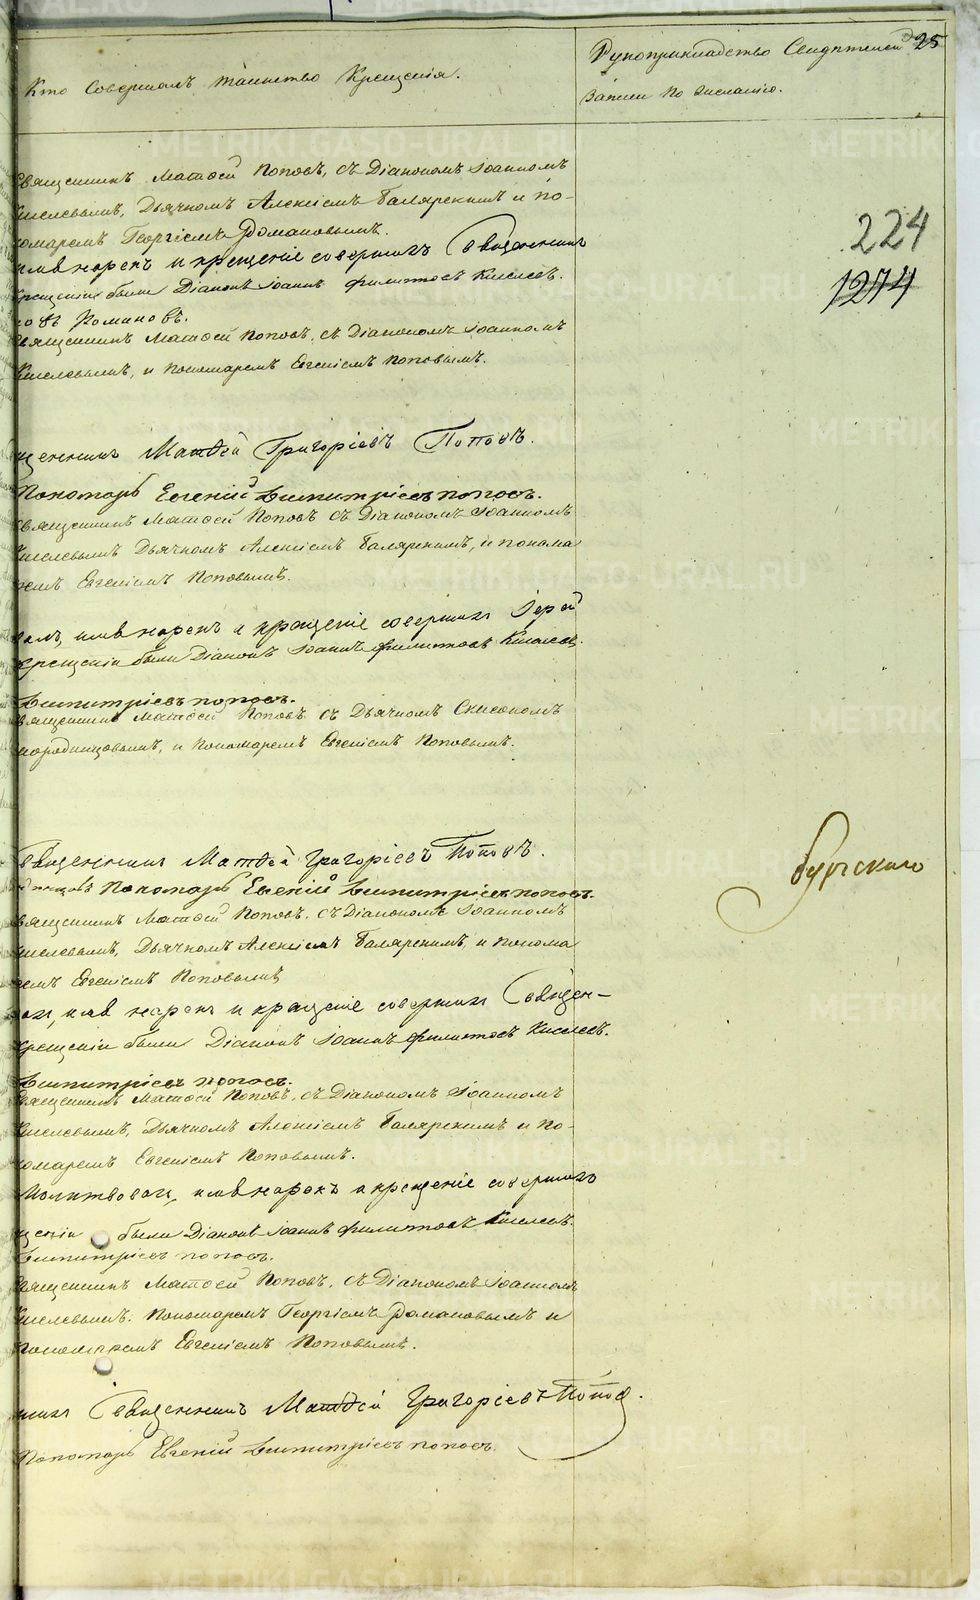 25
Кто совершалъ таинство Крещенія.
Рукоприкладство свидѣтелей
записи по желанію.
224
1274
Священникъ Матѳей Поповъ, съ Діакономъ Іоанномъ
Киселевымъ, Дьячкомъ Алексіемъ Балярскимъ и по-
номаремъ Георгіемъ Романовымъ.
имя нарекъ и крещеніе совершилъ Священникъ
крещеніи были Діаконъ Іоаннъ Филитовъ Киселевъ.
Романовъ.
Священникъ Матѳей Поповъ, съ Діакономъ Іоанномъ
Киселевымъ, и Пономаремъ Евгеніемъ Поповымъ.
щенникъ Матѳей Григоріевъ Поповъ.
Пономарь Евгеній Димитріевъ Поповъ.
Священникъ Матѳей Поповъ съ Діакономъ Іоанномъ
Киселевымъ Дьячкомъ Алексіемъ Балярскимъ, и понома
ремъ Евгеніемъ Поповымъ.
имя нарекъ и крещеніе совершилъ Іерей
крещеніи были Діаконъ Іоаннъ Филитовъ Киселевъ.
Димитріевъ Поповъ.
Священникъ Матѳей Поповъ съ Дьячкомъ
и Пономаремъ Евгеніемъ Поповымъ.
Священникъ Матѳей Григоріевъ Поповъ.
Пономарь Евгеній Димитріевъ Поповъ.
бургскаго
Священникъ Матѳей Поповъ, съ Діакономъ Іоанномъ
Киселевымъ, Дьячкомъ Алексіемъ Балярскимъ, и понома
ремъ Евгеніемъ Поповымъ
имя нарекъ и крещеніе совершилъ Священ-
крещеніи были Діаконъ Іоаннъ Филитовъ Киселевъ.
Димитріевъ Поповъ.
Священникъ Матѳей Поповъ, съ Діакономъ Іоанномъ
Киселевымъ, Дьячкомъ Алексіемъ Балярскимъ и По-
номаремъ Евгеніемъ Поповымъ.
Молитвовалъ, имя нарекъ и крещеніе совершилъ
щеніи были Діаконъ Іоаннъ Филитовъ Киселевъ.
Димитріевъ Поповъ.
Священникъ Матѳей Поповъ, съ Діакономъ Іоанномъ
Киселевымъ, Пономаремъ Георгіемъ Романовымъ и
Пономаремъ Евгеніемъ Поповымъ.
шилъ Священникъ Матѳей Григоріевъ Поповъ.
Пономарь Евгеній Димитріевъ Поповъ.
METRIKI-GASO-URAL.RU